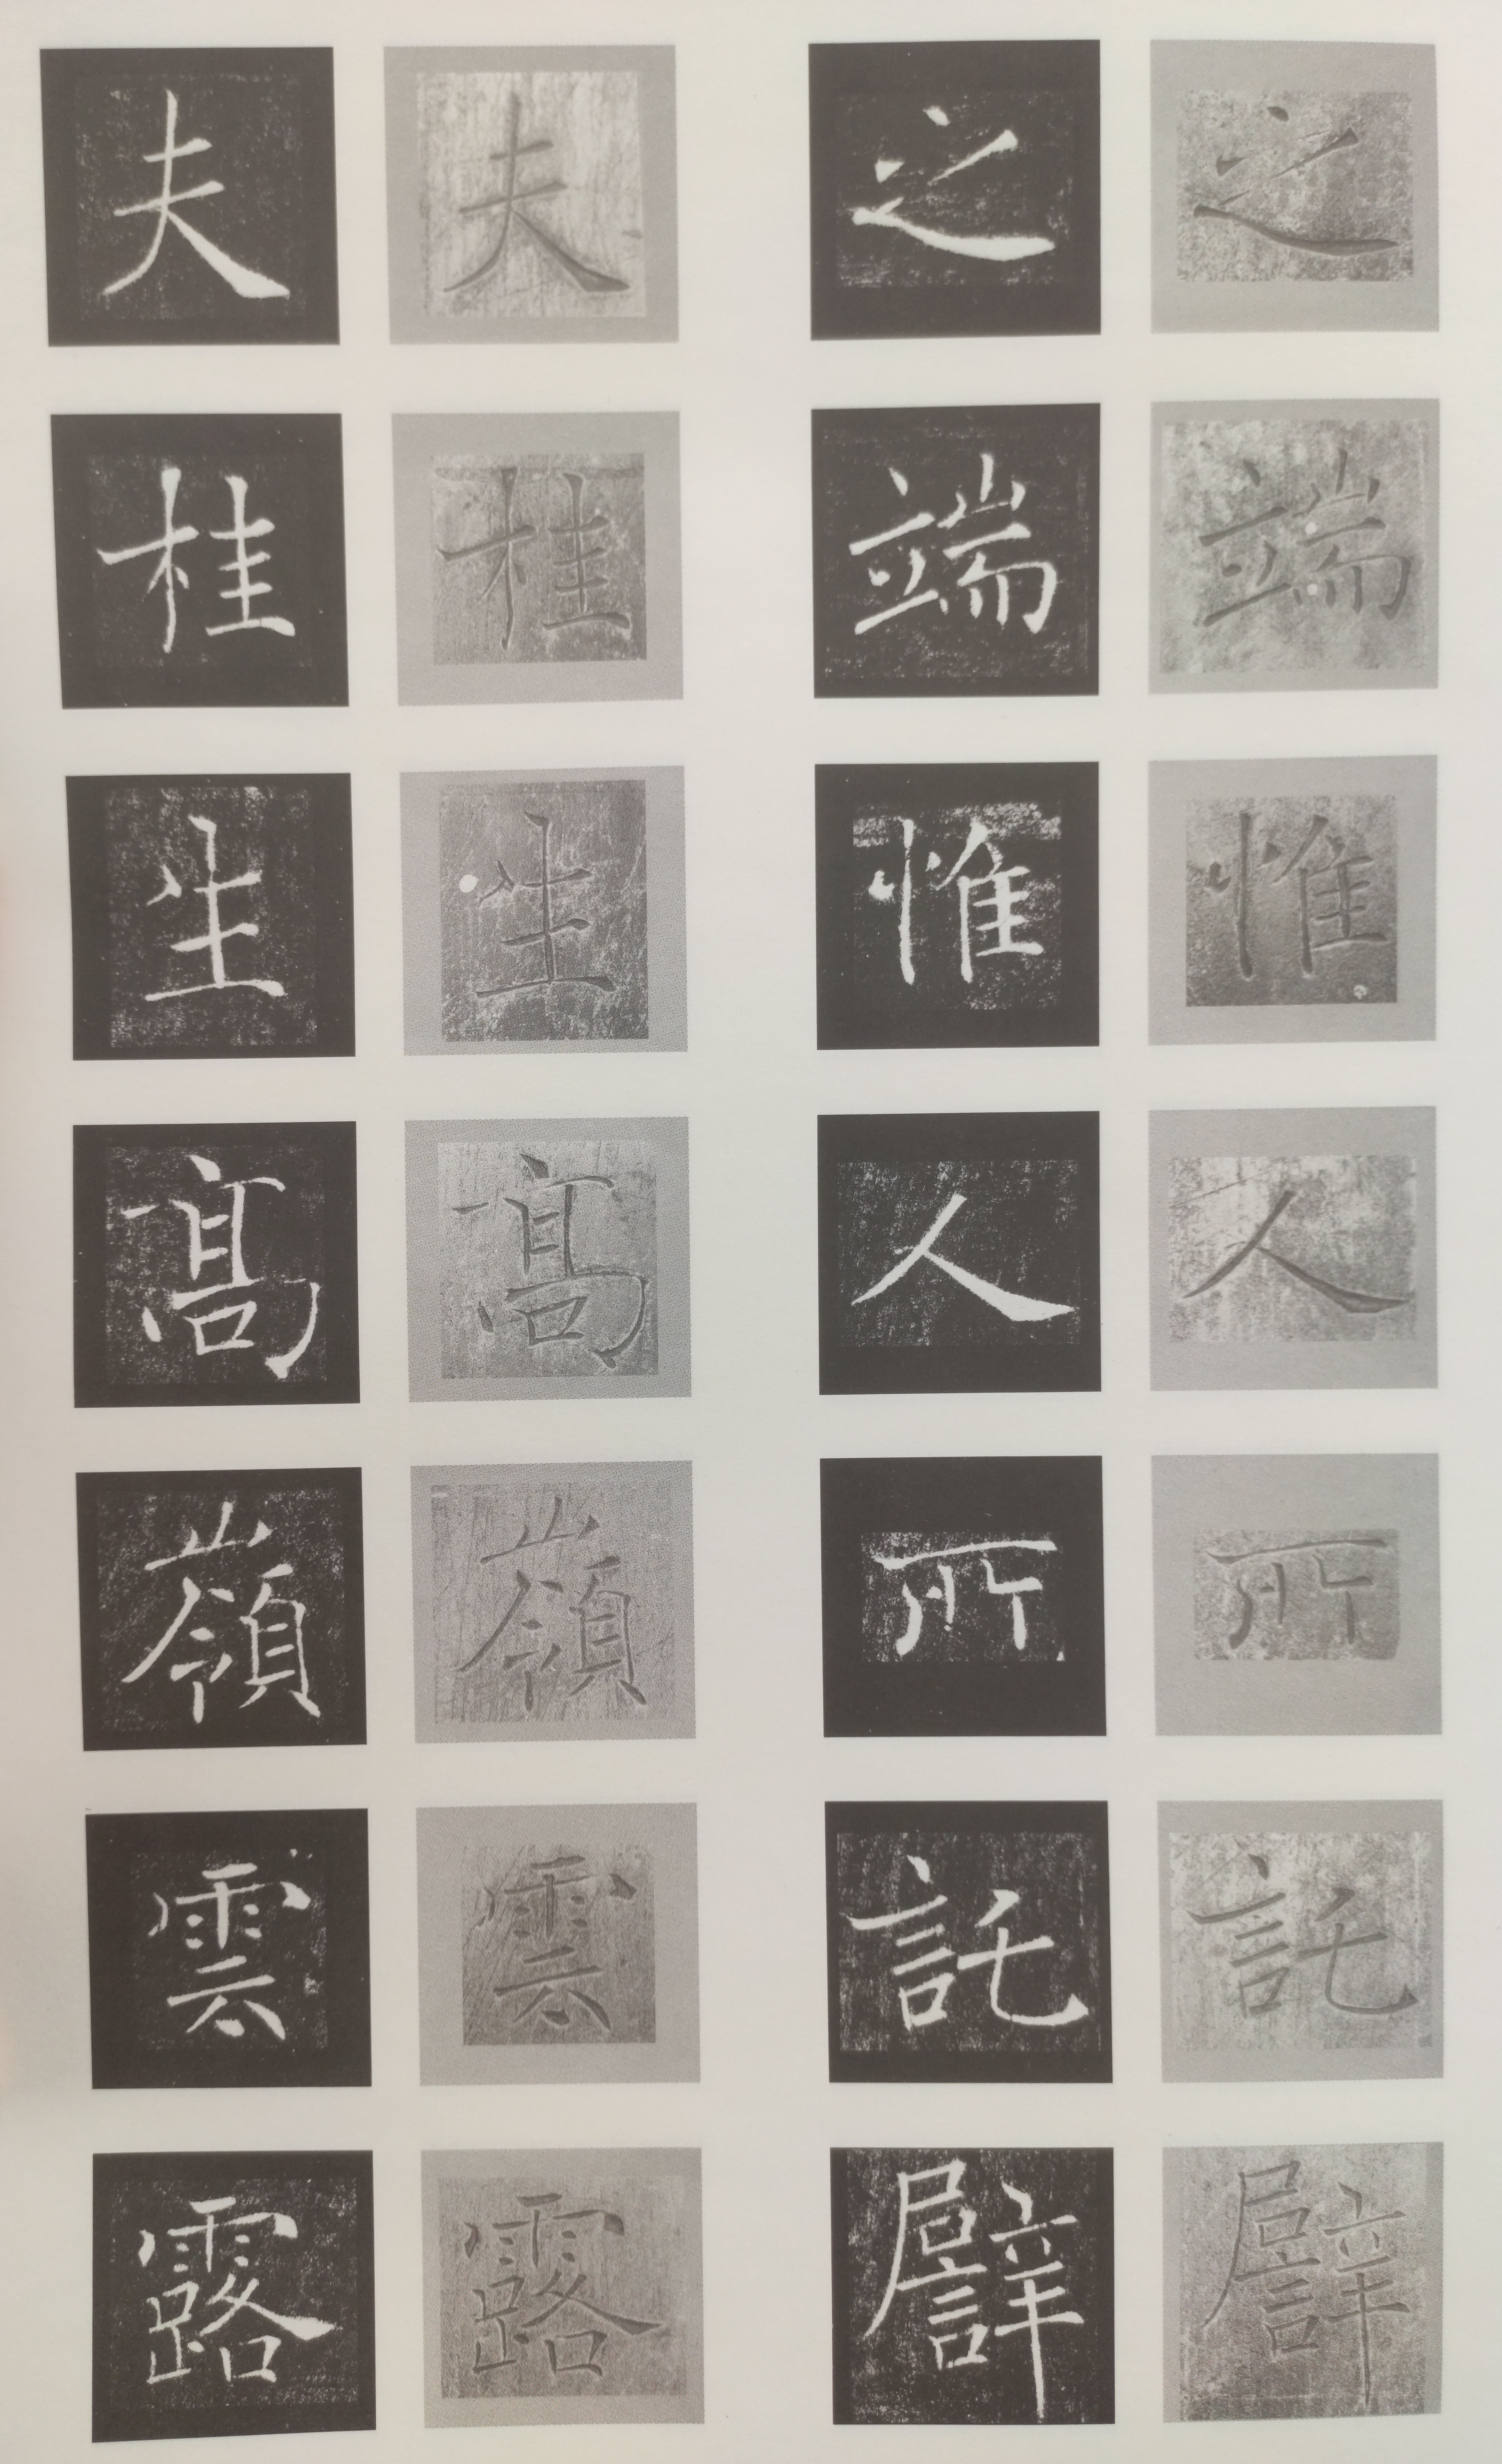 之端惟人所託譬
之端惟人所託譬
夫桂生髙嶺雲露
夫桂生髙嶺雲露